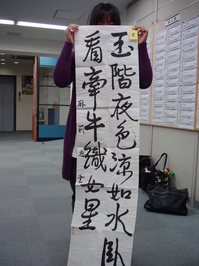 玉階夜色涼如水臥
看牽牛織女星